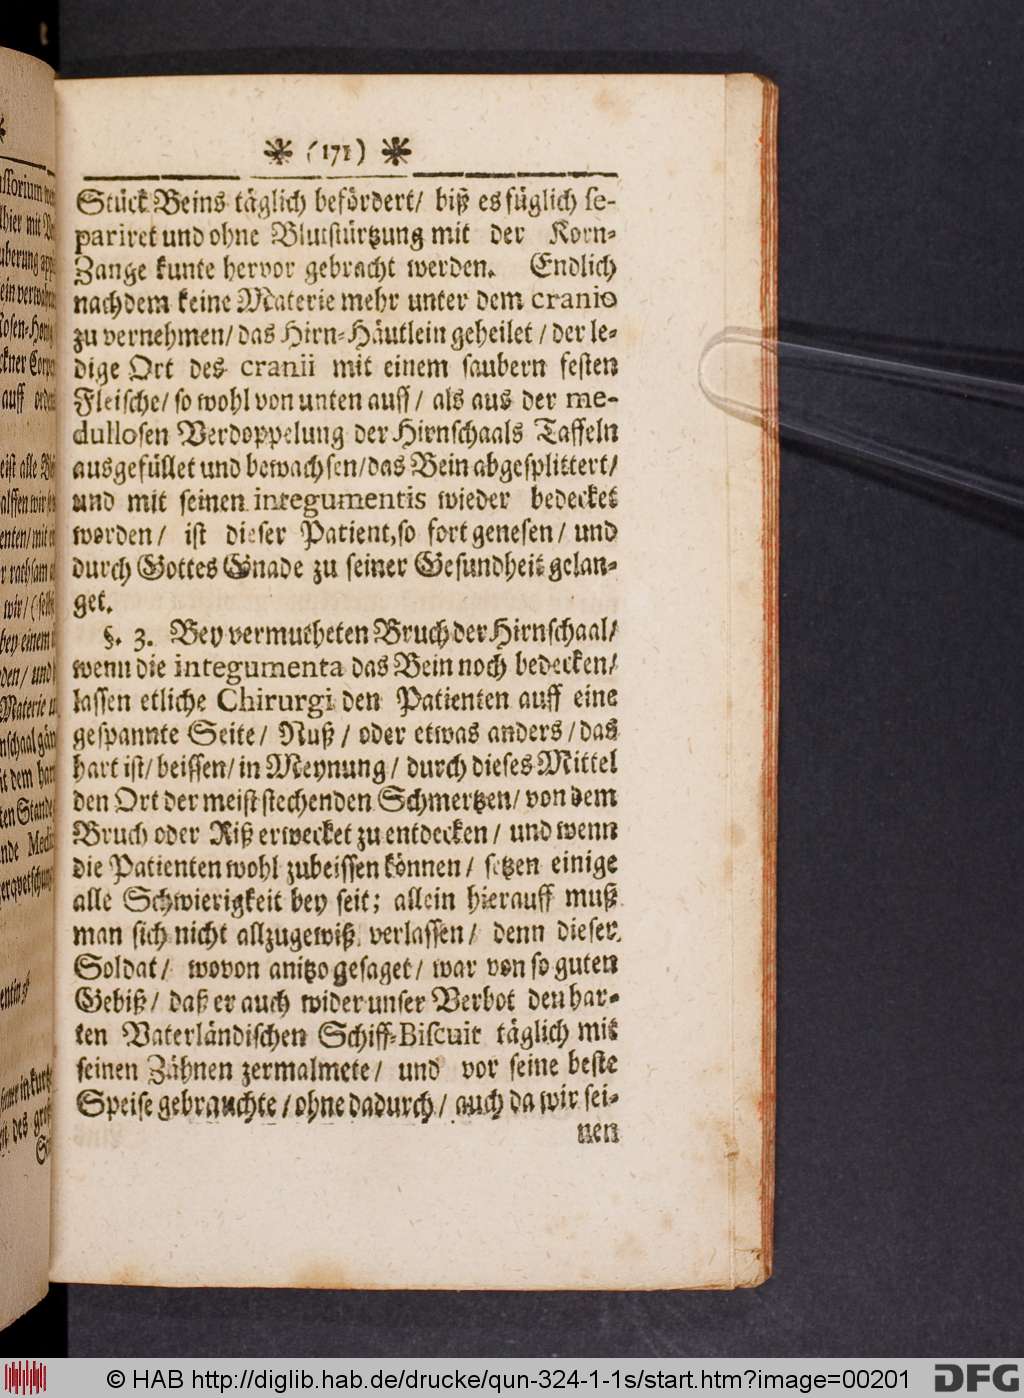 (171)
Stück Beins täglich befördert/ biß es füglich se-
pariret und ohne Blutstürtzung mit der Korn-
Zange kunte hervor gebracht werden. Endlich
nachdem keine Materie mehr unter dem cranio
zu vernehmen/ das Hirn-Häutlein geheilet/ der le-
dige Ort des cranii mit einem saubern festen
Fleische/ so wohl von unten auff/ als aus der me-
dullosen Verdoppelung der Hirnschaals Taffeln
ausgefüllet und bewachsen/ das Bein abgesplittert/
und mit seinen integumentis wieder bedecket
worden/ ist dieser Patient, so fort genesen/ und
durch Gottes Gnade zu seiner Gesundheit gelan-
get.
§. 3. Bey vermutheten Bruch der Hirnschaal/
wenn die integumenta das Bein noch bedecken/
lassen etliche Chirurgi den Patienten auff eine
gespannte Seite/ Nuß/ oder etwas anders/ das
hart ist/ beissen/ in Meynung/ durch dieses Mittel
den Ort der meist stechenden Schmertzen/ von dem
Bruch oder Riß erwecket zu entdecken/ und wenn
die Patienten wohl zubeissen können/ setzen einige
alle Schwierigkeit bey seit; allein hierauff muß
man sich nicht allzugewiß verlassen/ denn dieser
Soldat/ wovon anitzo gesaget/ war von so guten
Gebiß/ daß er auch wider unser Verbot den har-
ten Vaterländischen Schiff-Biscuit täglich mit
seinen Zähnen zermalmete/ und vor seine beste
Speise gebrauchte/ ohne dadurch/ auch da wir sei-
nen
© HAB http://diglib.hab.de/drucke/qun-324-1-1s/start.htm?image=00201
DFG